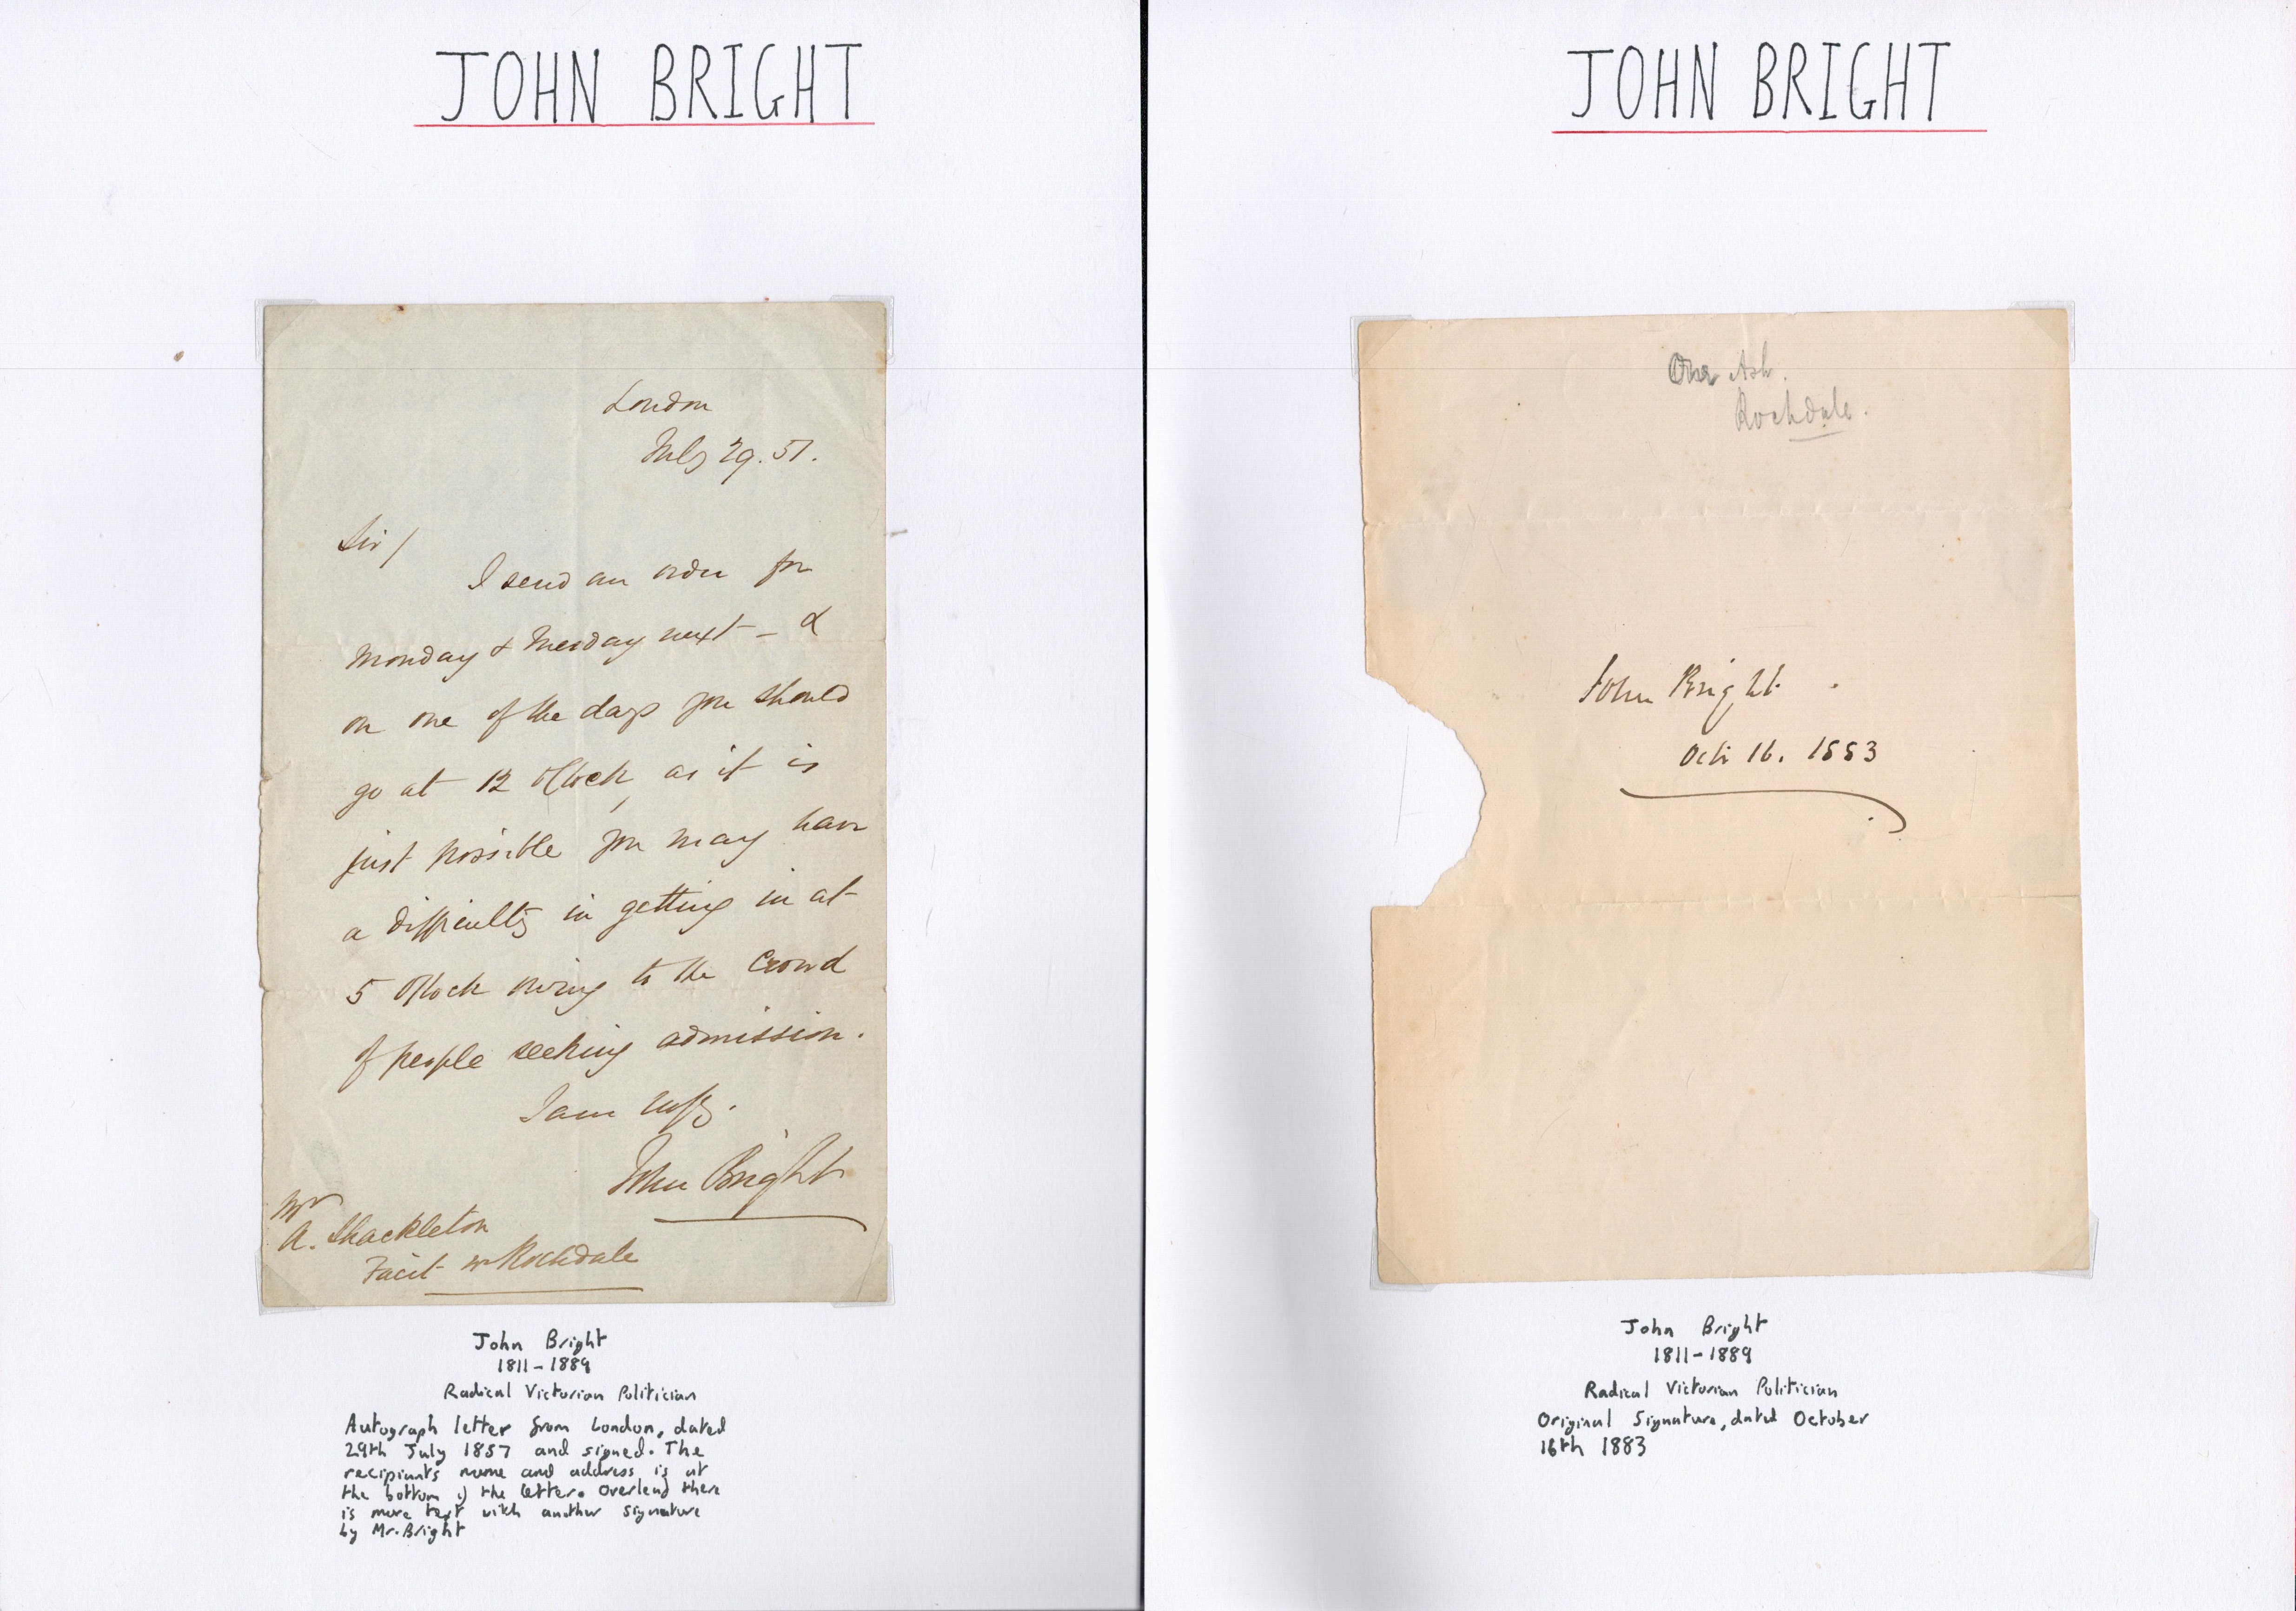 JOHN BRIGHT
London
July 29. 57.
Sir/
I send an order for
Monday & Tuesday next – &
on one of the days you should
go at 12 o'Clock, as it is
just possible you may have
a difficulty in getting in at
5 o'Clock owing to the crowd
of people seeking admission.
I am
John Bright
Mr
A. Shackleton
Facit nr Rochdale
John Bright
1811-1889
Radical Victorian Politician
Autograph letter from London, dated
29th July 1857 and signed. The
recipiants name and address is at
the bottom of the letter. Overleaf there
is more text with another signature
by Mr. Bright
JOHN BRIGHT
One Ash.
Rochdale.
John Bright.
Oct. 16. 1883
John Bright
1811-1889
Radical Victorian Politician
Original Signature, dated October
16th 1883